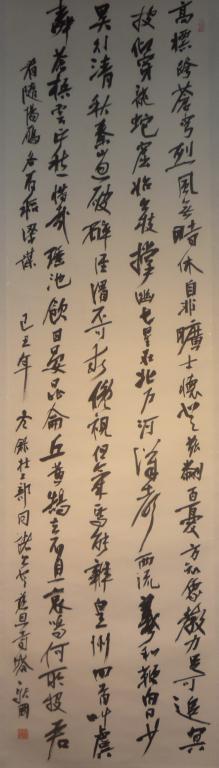 高標跨蒼穹烈風無時休自非曠士懷登茲翻百憂方知象教力足可追冥
搜仰穿龍蛇窟始出枝撐幽七星在北戶河漢聲西流羲和鞭白日少
昊行清秋秦山忽破碎涇渭不可求俯視但一氣焉能辨皇州回首叫虞
舜蒼梧雲正愁惜哉瑤池飲日晏昆侖丘黃鵠去不息哀鳴何所投君
看隨陽雁各有稻粱謀 己丑年 錄杜工部同諸公登慈恩寺塔